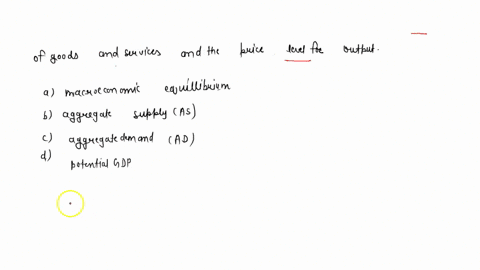 of goods and services and the price level for output.
a) macroeconomic equillibrium
b) aggregate supply (AS)
c) aggregate demand (AD)
d) potential GDP